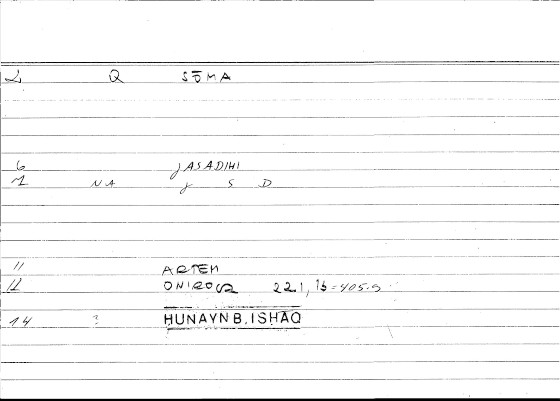 2 Q SŌMA
6 JASADIHI
7 NA J S D
11 ARTEM
12 ONIROCR 221, 13 = 405.9
14 ? HUNAYN B. ISHAQ